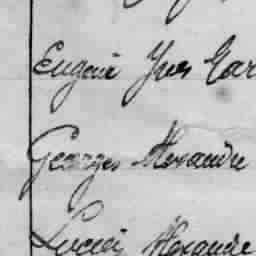 Eugène Yves Mar
Georges Alexandre
Lucien Alexandre